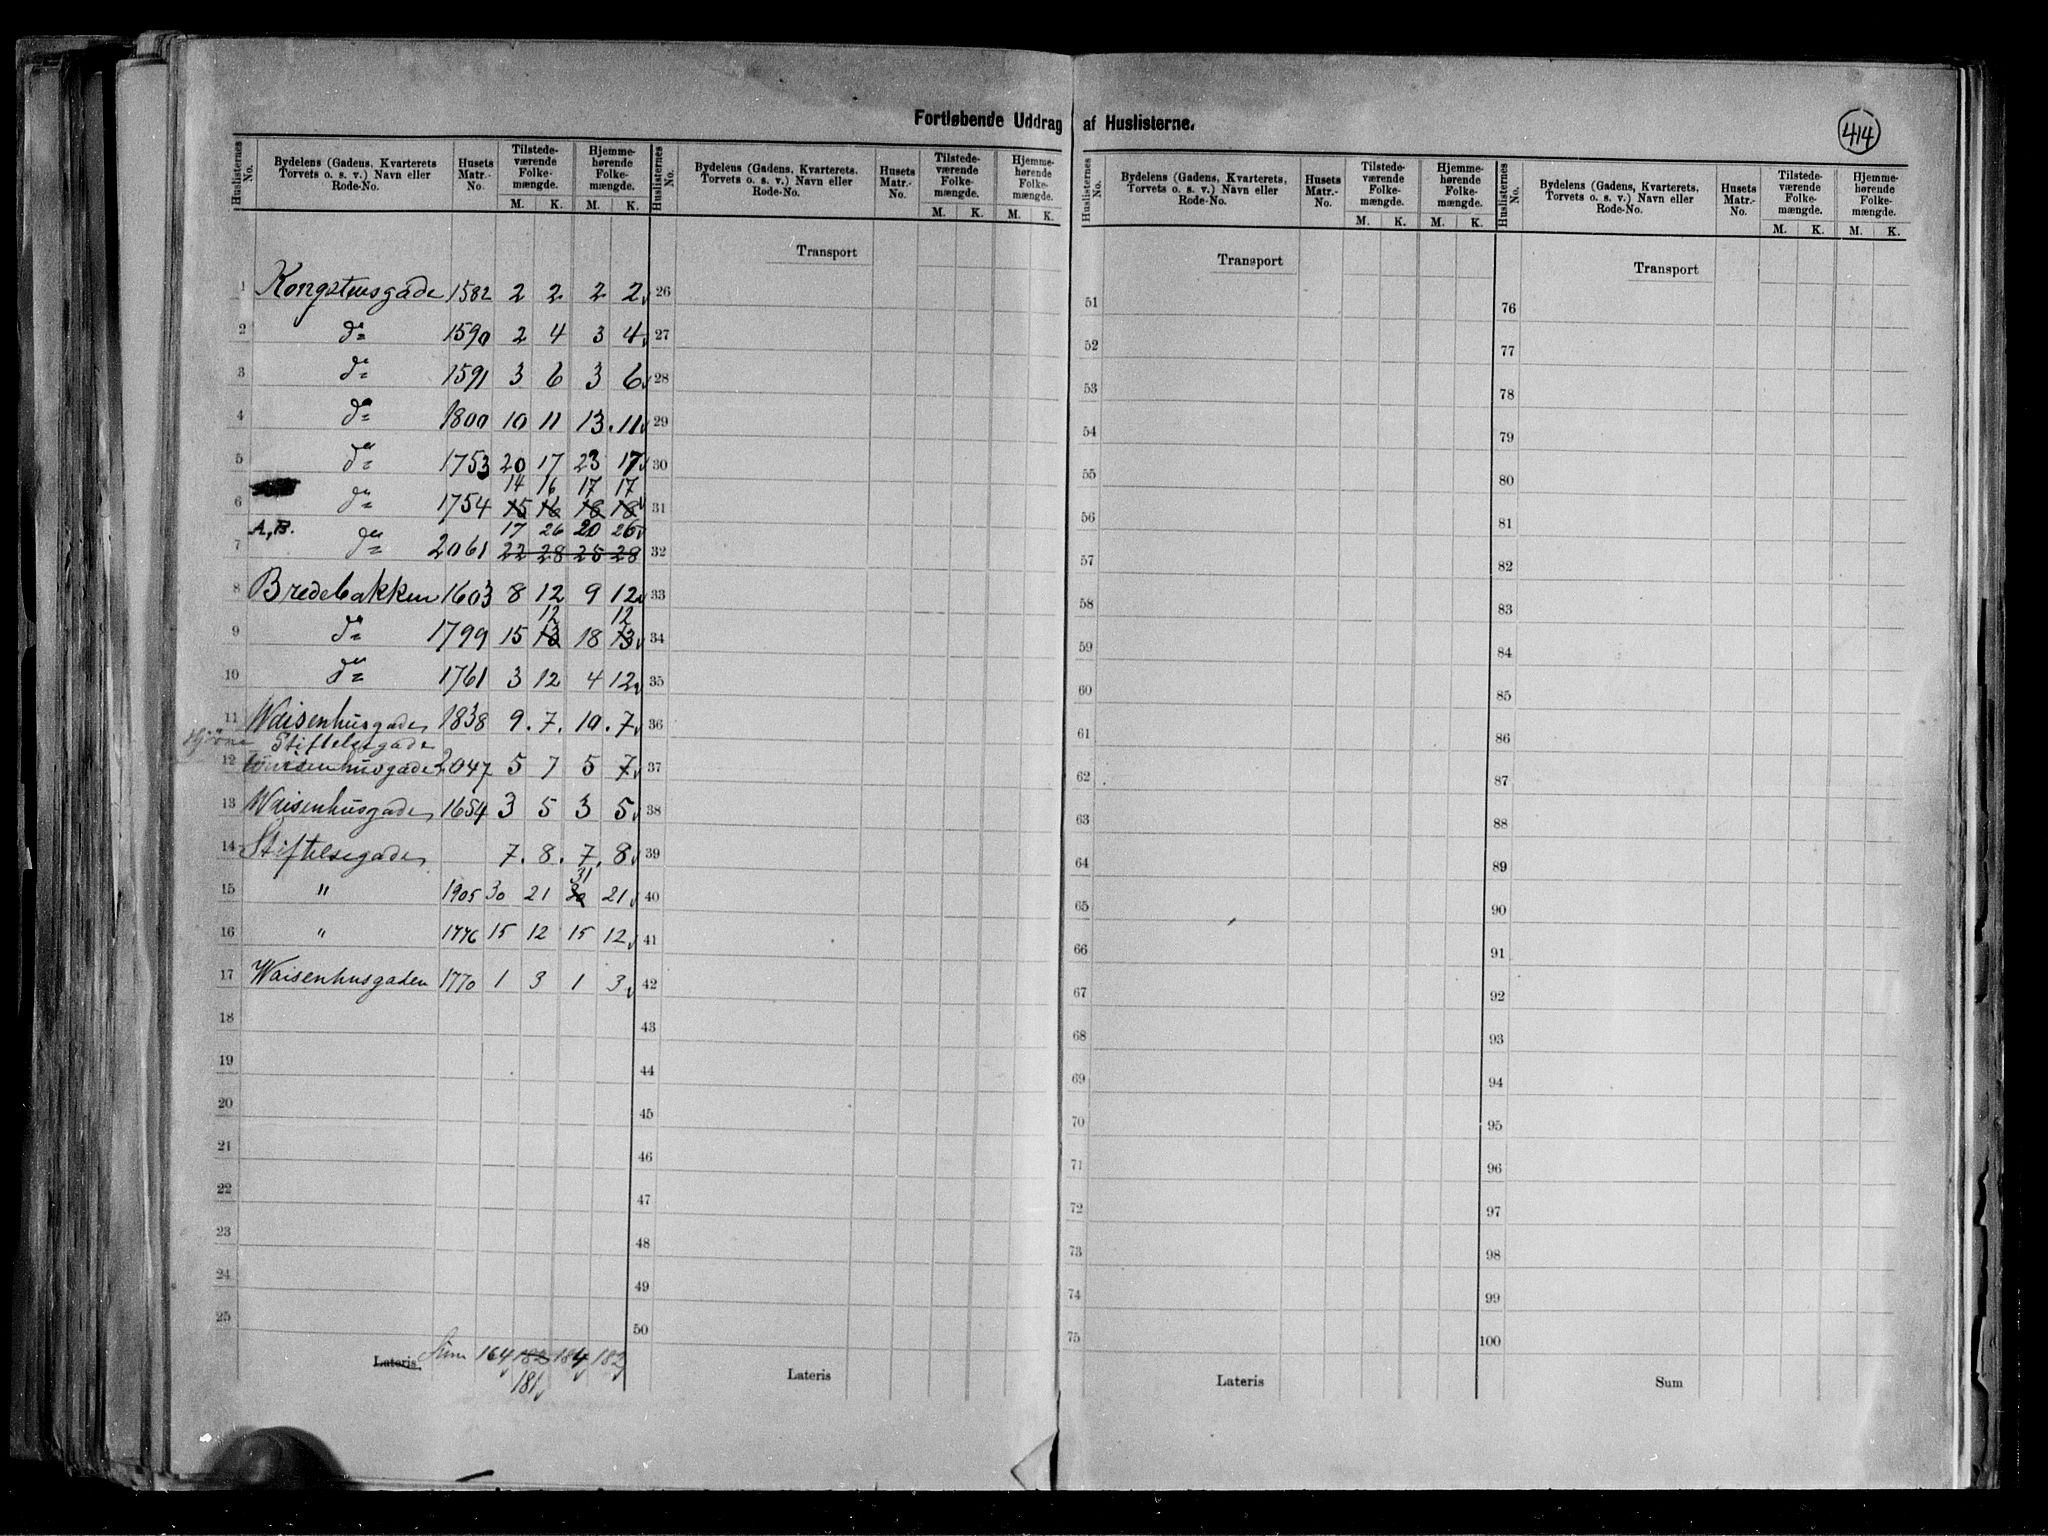 Fortløbende Uddrag af Huslisterne.
414
Huslisternes No. | Bydelens (Gadens, Kvarterets Torvets o. s. v.) Navn eller Rode-No. | Husets Matr.-No. | Tilstede-værende Folke-mængde. M. K. | Hjemme-hørende Folke-mængde. M. K.
Huslisternes No. | Bydelens (Gadens, Kvarterets, Torvets o. s. v.) Navn eller Rode-No. | Husets Matr.-No. | Tilstede-værende Folke-mængde. M. K. | Hjemme-hørende Folke-mængde. M. K.
Huslisternes No. | Bydelens (Gadens, Kvarterets, Torvets o. s. v.) Navn eller Rode-No. | Husets Matr.-No. | Tilstede-værende Folke-mængde. M. K. | Hjemme-hørende Folke-mængde. M. K.
Huslisternes No. | Bydelens (Gadens, Kvarterets, Torvets o. s. v.) Navn eller Rode-No. | Husets Matr.-No. | Tilstede-værende Folke-mængde. M. K. | Hjemme-hørende Folke-mængde. M. K.
Transport Transport Transport
1 Kongstensgade 1582 2 2 2 2
2 do 1590 2 4 3 4
3 do 1591 3 6 3 6
4 do 1800 10 11 13. 11
5 do 1753 20 17 23 17
14 16 17 17
6 do 1754 15 16 18 18
A,B. 17 26 20 26
7 do 2061 22 28 25 28
8 Bredebakken 1603 8 12 9 12
12 12
9 do 1799 15 13 18 13
10 do 1761 3 12 4 12
11 Waisenhusgaden 1838 9. 7. 10. 7
Hjørne Stiftelsgade
12 Waisenhusgade 2047 5 7 5 7
13 Waisenhusgaden 1654 3 5 3 5
14 Stiftelsegaden 7. 8. 7. 8
31
15 " 1905 30 21 30 21
16 " 1776 15 12 15 12
17 Waisenhusgaden 1770 1 3 1 3
18
19
20
21
22
23
24
25
Lateris Sum 164 182 184 182
181
26
27
28
29
30
31
32
33
34
35
36
37
38
39
40
41
42
43
44
45
46
47
48
49
50
Lateris
51
52
53
54
55
56
57
58
59
60
61
62
63
64
65
66
67
68
69
70
71
72
73
74
75
Lateris
76
77
78
79
80
81
82
83
84
85
86
87
88
89
90
91
92
93
94
95
96
97
98
99
100
Sum